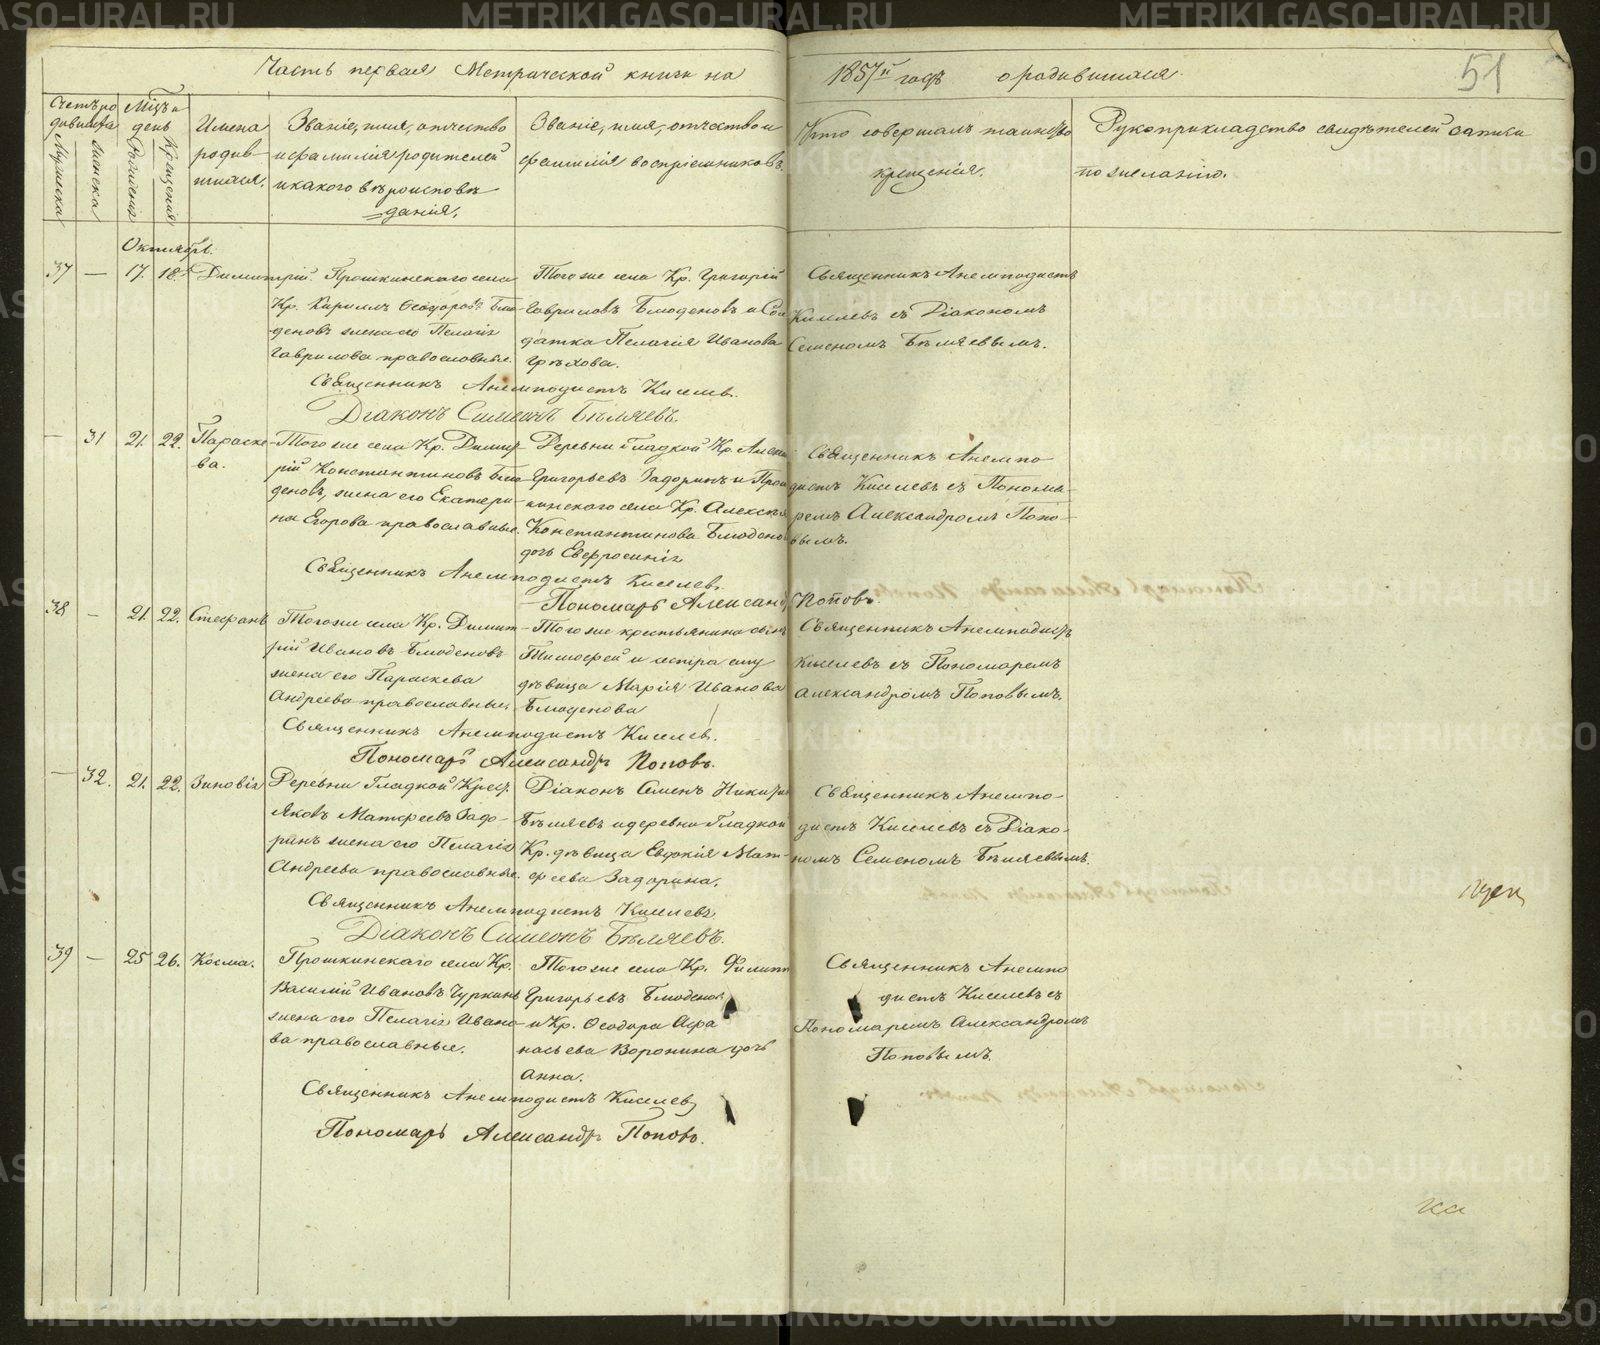 Часть первая Метрической книги на 1857й годъ о родившихся.
51
Счетъ родившихся
Мужеска
женска
Мѣц. и день
Рожденія
Крещенія
Имена родившихся.
Званіе, имя, отчество и фамилія родителей и какого вѣроисповѣданія.
Званіе, имя, отчество и фамилія воспріемниковъ.
Кто совершалъ таинство крещенія.
Рукоприкладство свидѣтелей записи по желанію.
Октябрь.
37 — 17. 18. Димитрій.
Прошкинскаго села
Кр. Кириллъ Ѳеодоровъ Блюденовъ
жена его Пелагія
Гаврилова православные.
Тогоже села Кр. Григорій
Гавриловъ Блюденовъ и Солдатка
Пелагія Иванова
Грѣхова.
Священникъ Анемподистъ
Киселевъ съ Діакономъ
Семеномъ Бѣляевымъ.
Священникъ Анемподистъ Киселевъ.
Діаконъ Симеонъ Бѣляевъ.
— 31 21. 22. Параскева.
Тогоже села Кр. Димитрій
Константиновъ Блюденовъ,
жена его Екатерина
Егорова православные.
Деревни Гладкой Кр.
Григорьевъ Задоринъ и Прошкинскаго
села Кр. Алексѣя
Константинова Блюденова
дочь Евфросинія
Священникъ Анемподистъ
Киселевъ съ Пономаремъ
Александромъ Поповымъ.
Священникъ Анемподистъ Киселевъ
Пономарь Александръ Поповъ.
38 — 21. 22. Стефанъ
Тогоже села Кр. Димитрій
Ивановъ Блюденовъ
жена его Параскева
Андреева православные.
Тогоже крестьянина сынъ
Тимофей и сестра ему
дѣвица Марія Иванова
Блюденова
Священникъ Анемподистъ
Киселевъ съ Пономаремъ
Александромъ Поповымъ.
Священникъ Анемподистъ Киселев.
Пономарь Александръ Поповъ.
— 32. 21. 22. Зиновія
Деревни Гладкой Крест.
Яковъ Матфеевъ Задоринъ
жена его Пелагія
Андреева православные.
Діаконъ Семенъ
Бѣляевъ и деревни Гладкой
Кр. дѣвица Евдокія Матфеева
Задорина.
Священникъ Анемподистъ
Киселевъ съ Діакономъ
Семеномъ Бѣляевымъ.
Священникъ Анемподистъ Киселевъ
Діаконъ Симеонъ Бѣляевъ.
39 — 25 26. Косма.
Прошкинскаго села Кр.
Василій Ивановъ Чуркинъ
жена его Пелагія Иванова
православные.
Тогоже села Кр. Филиппъ
Григорьевъ Блюденовъ
и Кр. Ѳеодора Афанасьева
Воронина дочь
Анна.
Священникъ Анемподистъ
Киселевъ съ
Пономаремъ Александромъ
Поповымъ.
Священникъ Анемподистъ Киселевъ
Пономарь Александръ Поповъ.
METRIKI.GASO-URAL.RU